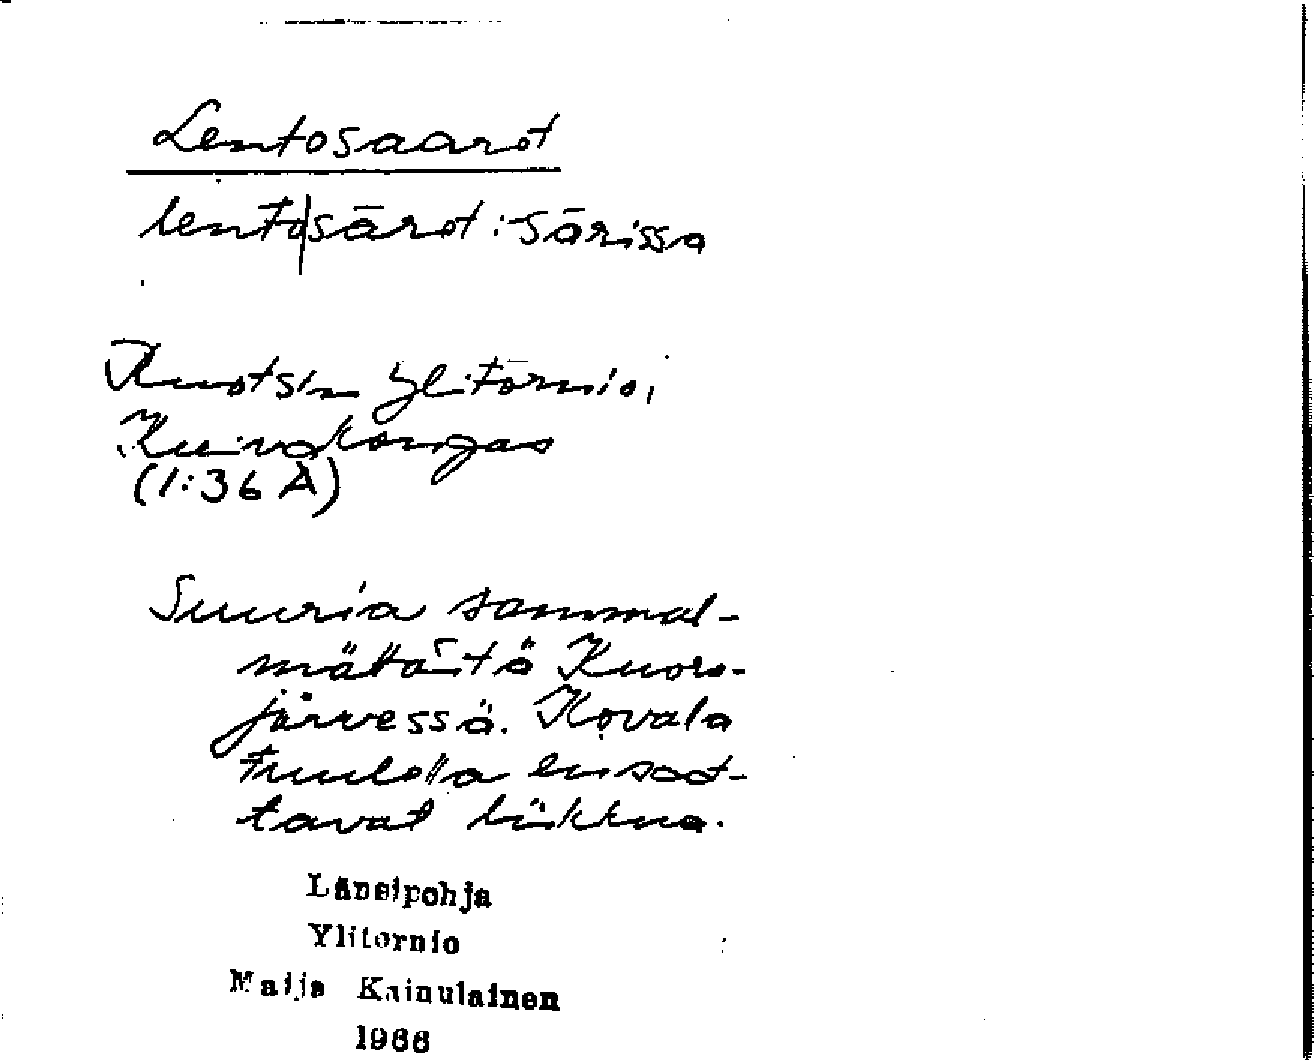 Lentosaarot
lento|sārot : sārissa
Ruotsin Ylitornio,
Kuivakangas
(1:36 A)
Suuria sammal-
mättäitä Kuoro-
järvessä. Kovala
tuulella
tavat liikkua.
Länsipohja
Ylitornio
Maija Kainulainen
1966